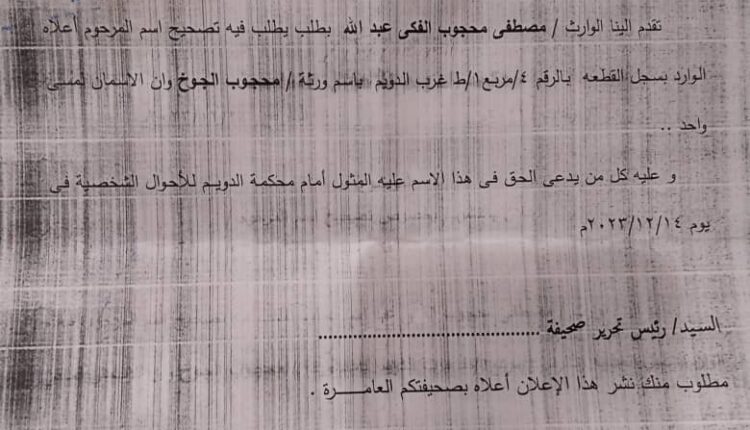 تقدم الينا الوارث / مصطفى محجوب الفكى عبد الله بطلب يطلب فيه تصحيح اسم المرحوم أعلاه
الوارد بسجل القطعه بالرقم ٤/مربع١/ط غرب الدويم باسم ورثة / محجوب الجوخ وان الاسمان لمسمى
واحد ..
و عليه كل من يدعى الحق فى هذا الاسم عليه المثول أمام محكمة الدويم للأحوال الشخصية فى
يوم ٢٠٢٣/١٢/١٤م
السيد/ رئيس تحرير صحيفة ........................................
مطلوب منك نشر هذا الإعلان أعلاه بصحيفتكم العامرة .